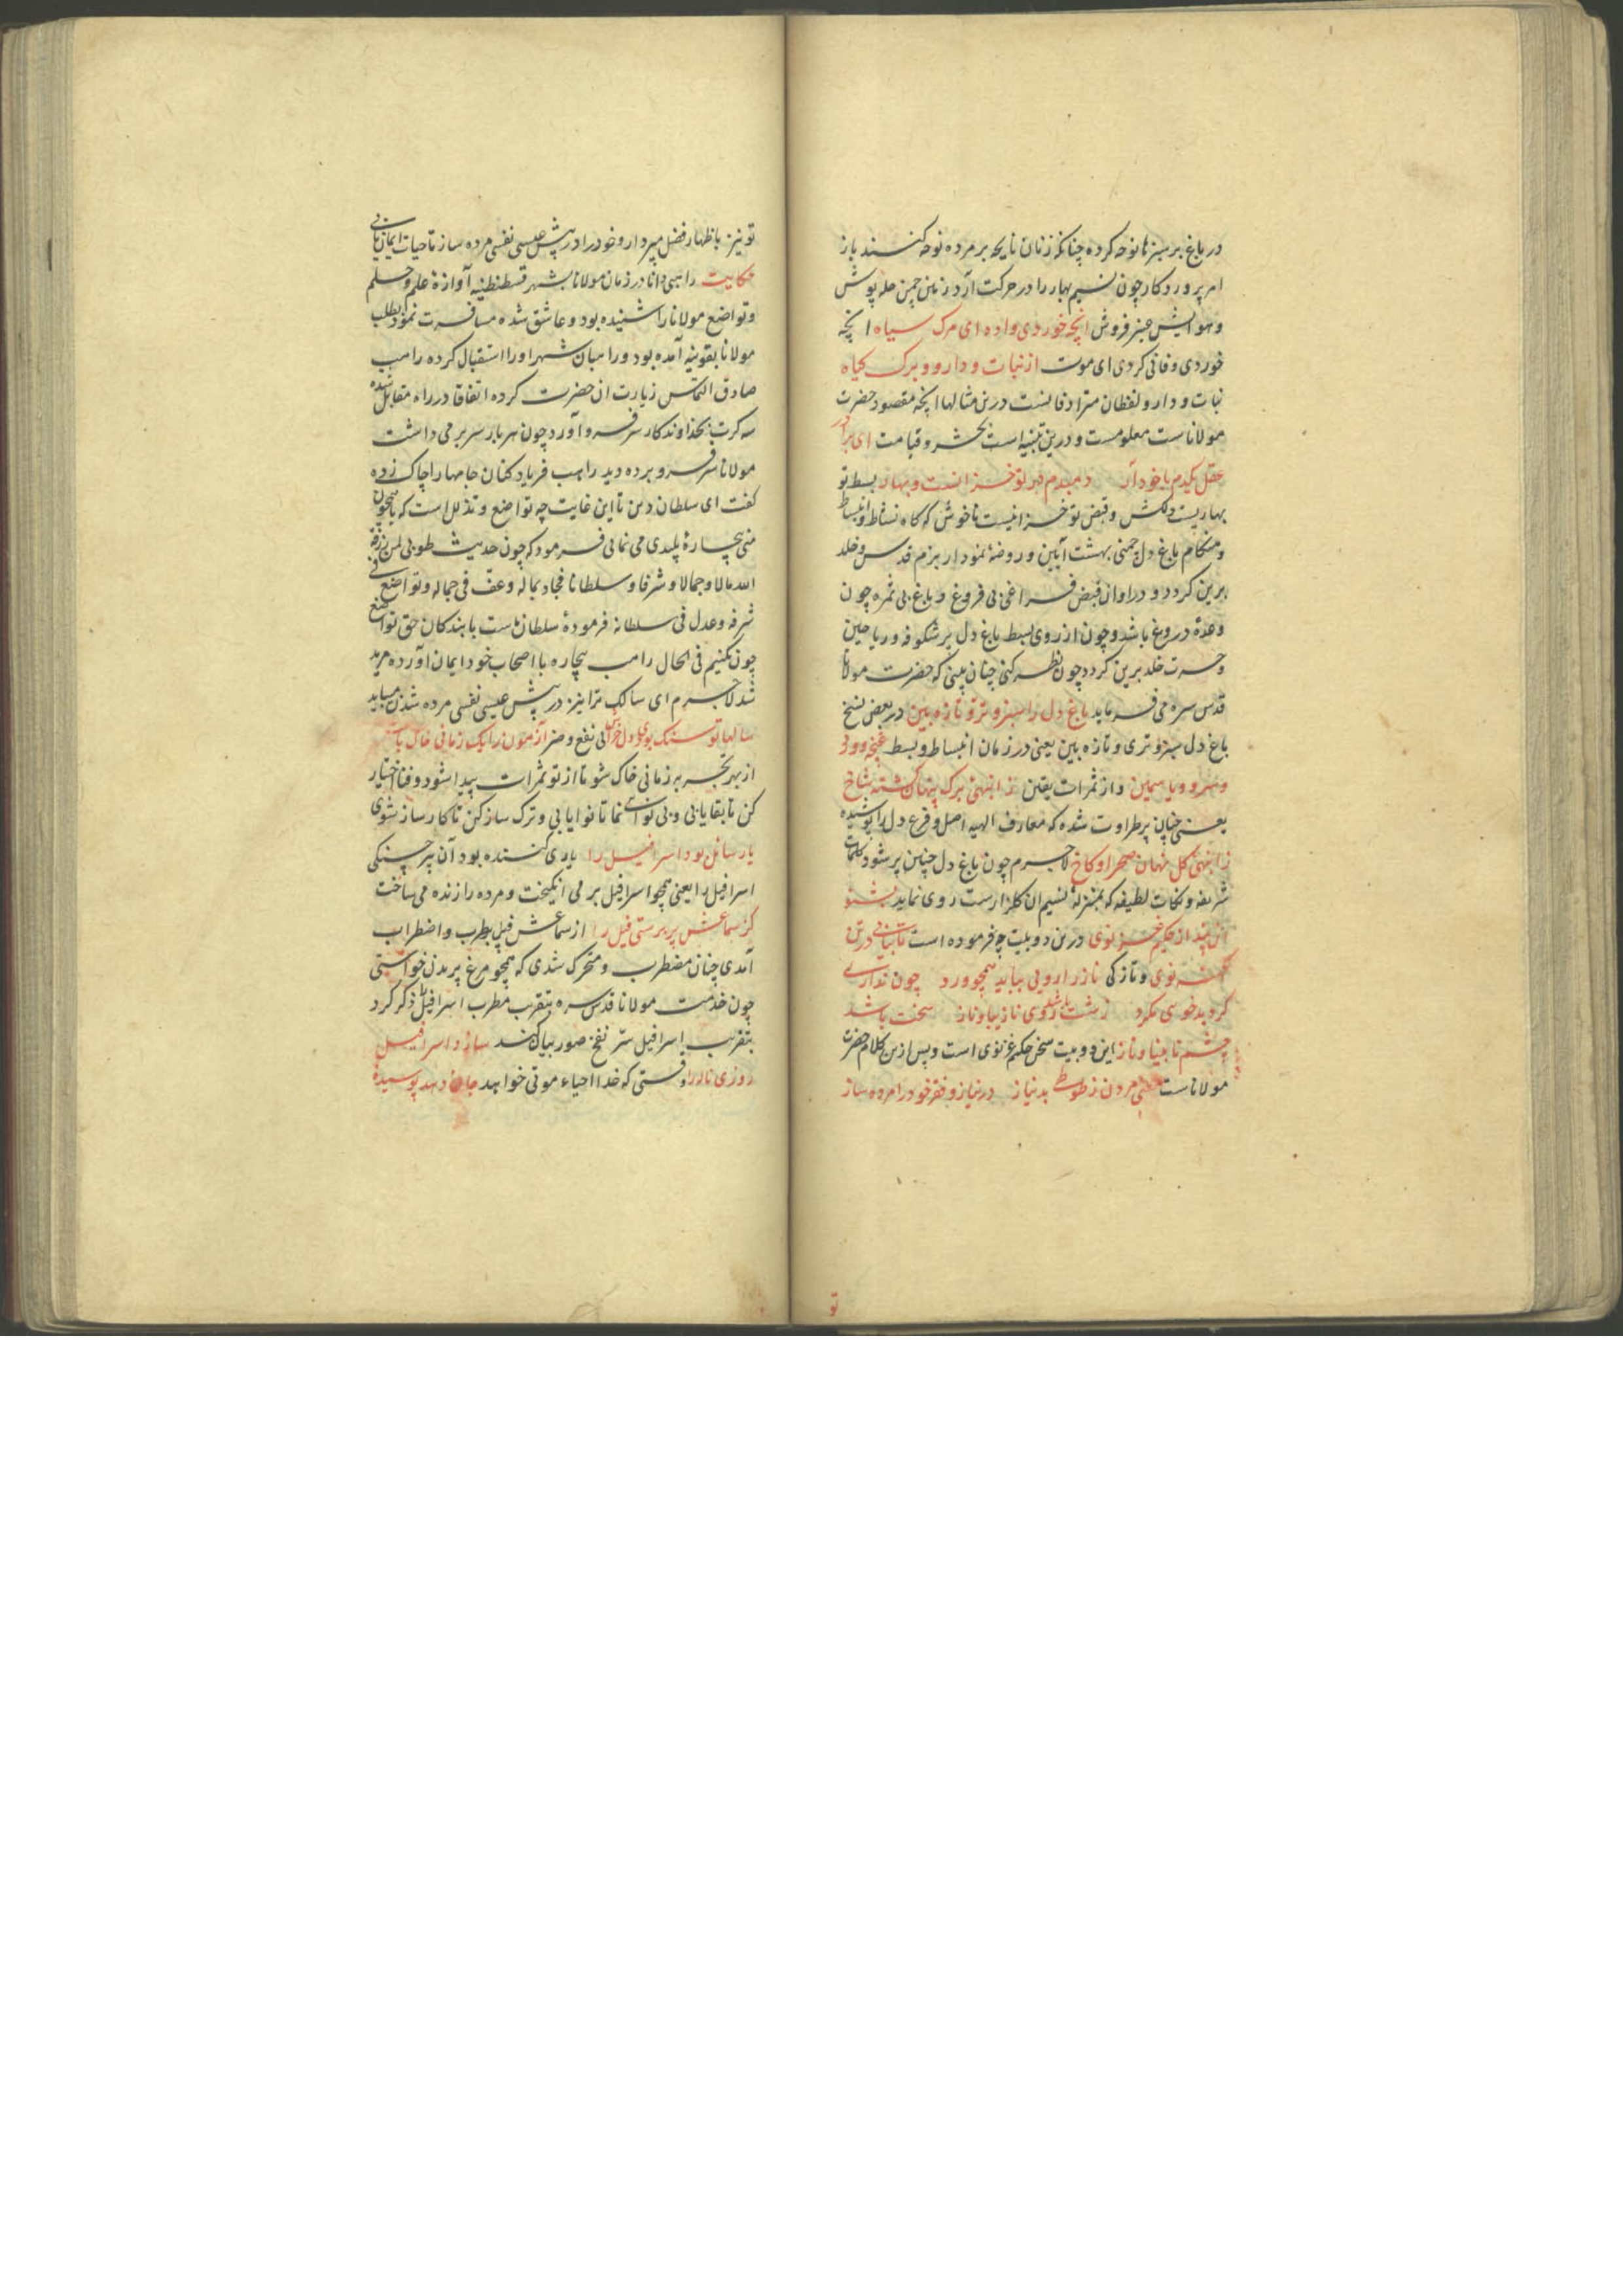 در باغ بر سبزها نوحه کرده چنانکه زنان نایحه بر مرده نوحه کنند باز
امر پروردکار چون نسیم بهار را در حرکت آرد زمین چمن حله پوش
و هوایش عنبر فروش انچه خوردی واده ای مرک سیاه انچه
خوردی و فانی کردی ای موت از نبات و دارو و برک کیاه
نبات و دارو لفظان مترادفانست درین مثالها انچه مقصود حضرت
مولاناست معلومست و درین تنبیه است بحشر و قیامت ای برادر
عقل یکدم با خود آر دمبدم در تو خزانست و بهار بسط تو
بهاریست دلکش و قبض تو خزانیست ناخوش که کاه نشاط و انبساط
و هنکام باغ دل چمنی بهشت آیین و روضهٔ نمودار بزم قدس و خلد
برین کردد و در اوان قبض فراغی بی فروغ و باغ بی ثمره چون
وعدهٔ دروغ باشد و چون از روی بسط باغ دل پر شکوفه و ریاحین
و حسرت خلد برین کردد چون نظر کنی چنان بینی که حضرت مولانا
قدس سره می فرماید باغ دل را سبز و تر و تازه بین در بعض نسخ
باغ دل سبز و تری و تازه بین یعنی در زمان انبساط و بسط غنچه و ورد
و سرو و یاسمین و از ثمرات یقین ز انبهی برک پنهان کشته شاخ
یعنی چنان پر طراوت شده که معارف الهیه اصل و فرع دل را پوشیده
ز انبهی کل نهان صحرا و کاخ لاجرم چون باغ دل چنین پر شود کلمات
شریفه و نکات لطیفه که بمنزلهٔ نسیم ان کلزارست روی نماید بشنو
این پند از حکیم غزنوی درین دو بیت چه فرموده است تا بیابی در تن
کهنه نوی و تازکی ناز را رویی بباید همچو ورد چون نداری
کرد بدخویی مکرد زشت باشد روی نازیبا و ناز سخت باشد
چشم نابینا و ناز این دو بیت سخن حکیم غزنوی است و پس ازین کلام حضرت
مولاناست معنی مردن ز طوطی بد نیاز در نیاز و فقر خود را مرده ساز
تو
تو نیز باظهار فضل مپرداز و خود را در پیش عیسی نفسی مرده ساز تا حیات ایمان یابی
حکایت راهبی دانا در زمان مولانا بشهر قسطنطنیه آوازهٔ علم و حلم
و تواضع مولانا را شنیده بود و عاشق شده مسافرت نمود بطلب
مولانا بقونیه آمده بود و راهبان شهر او را استقبال کرده راهب
صادق التماس زیارت ان حضرت کرده اتفاقا در راه مقابل شده
سه کرت بخداوندکار سر فرو آورد چون هر بار سر بر می داشت
مولانا سر فرو برده دید راهب فریاد کنان جامها را چاک زده
کفت ای سلطان دین تا این غایت چه تواضع و تذلل است که با همچون
منی بیچارهٔ پلیدی می نمایی فرمود که چون حدیث طوبی لمن رزقه
الله مالا و جمالا و شرفا و سلطانا فجاد بماله و عف فی جماله و تواضع فی
شرفه و عدل فی سلطانه فرمودهٔ سلطان ماست با بندکان حق تواضع
چون نکنیم فی الحال راهب بیچاره با اصحاب خود ایمان آورده مرید
شد لاجرم ای سالک ترا نیز در پیش عیسی نفسی مرده شدن میباید
سالها تو سنک بودی دلخراش بی نفع و ضر آزمون را یک زمانی خاک باش
از بهر تجربه زمانی خاک شو تا از تو ثمرات پیدا شود و فنا اختیار
کن تا بقا یابی و بی نوایی نما تا نوا یابی و ترک ساز کن تا کار ساز شوی
یا رسائل بود اسرافیل را یاری کننده بود آن پیر چنکی
اسرافیل را یعنی همچو اسرافیل بر می انکیخت و مرده را زنده می ساخت
کز سماعش پر برستی فیل را از سماعش فیل بطرب و اضطراب
آمدی چنان مضطرب و متحرک شدی که همچو مرغ پریدن خواستی
چون خدمت مولانا قدس سره بتقرب مطرب اسرافیل را ذکر کرد
بتقریب اسرافیل سر نفخ صور بیان کند سازد اسرافیل
روزی ناله را وقتی که خدا احیاء موتی خواهد جان دهد پوسیدهٔ